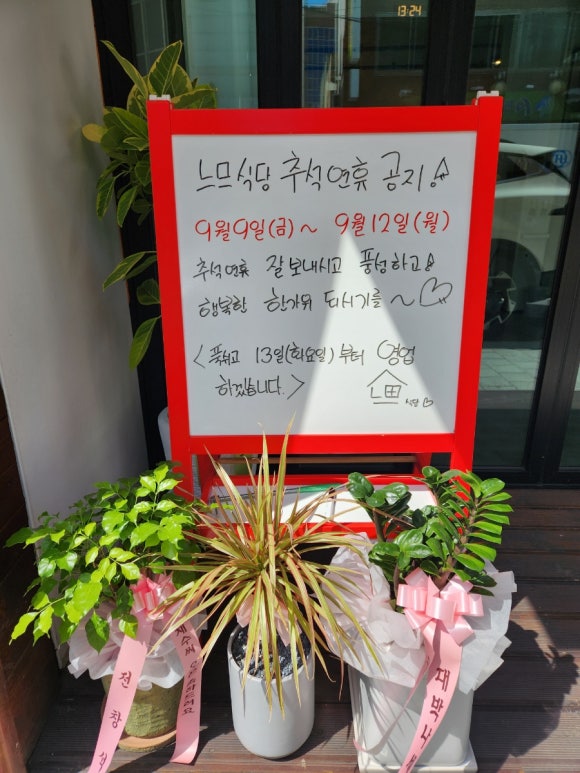 13:24
느므식당 추석연휴 공지!
9월9일(금)~ 9월12일(월)
추석연휴 잘보내시고 풍성하고!
행복한 한가위 되시기를~♡
<푹쉬고 13일(화요일)부터 영업
하겠습니다.>
식당♡
전창석
대박나